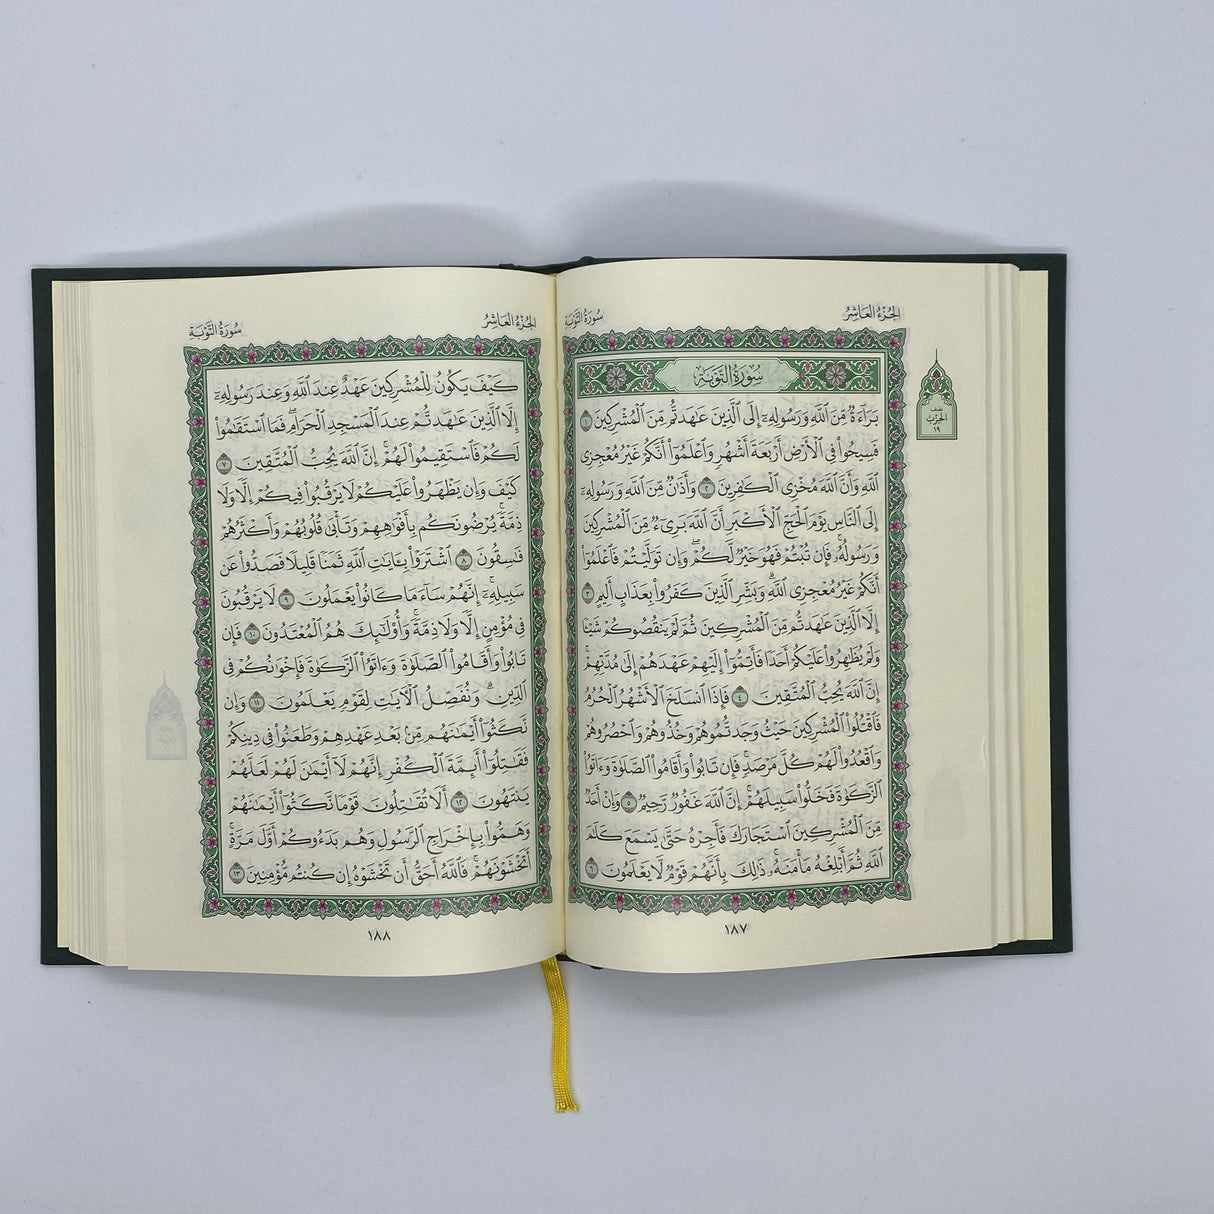 الجُزْءُ العَاشِرُ
سُورَةُ التَّوۡبَةِ
سُورَةُ التَّوۡبَةِ
بَرَآءَةٌ مِّنَ ٱللَّهِ وَرَسُولِهِۦٓ إِلَى ٱلَّذِينَ عَٰهَدتُّم مِّنَ ٱلۡمُشۡرِكِينَ ١
فَسِيحُواْ فِي ٱلۡأَرۡضِ أَرۡبَعَةَ أَشۡهُرٖ وَٱعۡلَمُوٓاْ أَنَّكُمۡ غَيۡرُ مُعۡجِزِي
ٱللَّهِ وَأَنَّ ٱللَّهَ مُخۡزِي ٱلۡكَٰفِرِينَ ٢ وَأَذَٰنٞ مِّنَ ٱللَّهِ وَرَسُولِهِۦٓ
إِلَى ٱلنَّاسِ يَوۡمَ ٱلۡحَجِّ ٱلۡأَكۡبَرِ أَنَّ ٱللَّهَ بَرِيٓءٞ مِّنَ ٱلۡمُشۡرِكِينَ
وَرَسُولُهُۥۚ فَإِن تُبۡتُمۡ فَهُوَ خَيۡرٞ لَّكُمۡۖ وَإِن تَوَلَّيۡتُمۡ فَٱعۡلَمُوٓاْ
أَنَّكُمۡ غَيۡرُ مُعۡجِزِي ٱللَّهِۗ وَبَشِّرِ ٱلَّذِينَ كَفَرُواْ بِعَذَابٍ أَلِيمٍ ٣
إِلَّا ٱلَّذِينَ عَٰهَدتُّم مِّنَ ٱلۡمُشۡرِكِينَ ثُمَّ لَمۡ يَنقُصُوكُمۡ شَيۡـٔٗا
وَلَمۡ يُظَٰهِرُواْ عَلَيۡكُمۡ أَحَدٗا فَأَتِمُّوٓاْ إِلَيۡهِمۡ عَهۡدَهُمۡ إِلَىٰ مُدَّتِهِمۡۚ
إِنَّ ٱللَّهَ يُحِبُّ ٱلۡمُتَّقِينَ ٤ فَإِذَا ٱنسَلَخَ ٱلۡأَشۡهُرُ ٱلۡحُرُمُ
فَٱقۡتُلُواْ ٱلۡمُشۡرِكِينَ حَيۡثُ وَجَدتُّمُوهُمۡ وَخُذُوهُمۡ وَٱحۡصُرُوهُمۡ
وَٱقۡعُدُواْ لَهُمۡ كُلَّ مَرۡصَدٖۚ فَإِن تَابُواْ وَأَقَامُواْ ٱلصَّلَوٰةَ وَءَاتَوُاْ
ٱلزَّكَوٰةَ فَخَلُّواْ سَبِيلَهُمۡۚ إِنَّ ٱللَّهَ غَفُورٞ رَّحِيمٞ ٥ وَإِنۡ أَحَدٞ
مِّنَ ٱلۡمُشۡرِكِينَ ٱسۡتَجَارَكَ فَأَجِرۡهُ حَتَّىٰ يَسۡمَعَ كَلَٰمَ
ٱللَّهِ ثُمَّ أَبۡلِغۡهُ مَأۡمَنَهُۥۚ ذَٰلِكَ بِأَنَّهُمۡ قَوۡمٞ لَّا يَعۡلَمُونَ ٦
نصف
الحزب
١٩
١٨٧
الجُزْءُ العَاشِرُ
سُورَةُ التَّوۡبَةِ
كَيۡفَ يَكُونُ لِلۡمُشۡرِكِينَ عَهۡدٌ عِندَ ٱللَّهِ وَعِندَ رَسُولِهِۦٓ
إِلَّا ٱلَّذِينَ عَٰهَدتُّمۡ عِندَ ٱلۡمَسۡجِدِ ٱلۡحَرَامِۖ فَمَا ٱسۡتَقَٰمُواْ
لَكُمۡ فَٱسۡتَقِيمُواْ لَهُمۡۚ إِنَّ ٱللَّهَ يُحِبُّ ٱلۡمُتَّقِينَ ٧
كَيۡفَ وَإِن يَظۡهَرُواْ عَلَيۡكُمۡ لَا يَرۡقُبُواْ فِيكُمۡ إِلّٗا وَلَا
ذِمَّةٗۚ يُرۡضُونَكُم بِأَفۡوَٰهِهِمۡ وَتَأۡبَىٰ قُلُوبُهُمۡ وَأَكۡثَرُهُمۡ
فَٰسِقُونَ ٨ ٱشۡتَرَوۡاْ بِـَٔايَٰتِ ٱللَّهِ ثَمَنٗا قَلِيلٗا فَصَدُّواْ عَن
سَبِيلِهِۦٓۚ إِنَّهُمۡ سَآءَ مَا كَانُواْ يَعۡمَلُونَ ٩ لَا يَرۡقُبُونَ
فِي مُؤۡمِنٍ إِلّٗا وَلَا ذِمَّةٗۚ وَأُوْلَٰٓئِكَ هُمُ ٱلۡمُعۡتَدُونَ ١٠ فَإِن
تَابُواْ وَأَقَامُواْ ٱلصَّلَوٰةَ وَءَاتَوُاْ ٱلزَّكَوٰةَ فَإِخۡوَٰنُكُمۡ فِي
ٱلدِّينِۗ وَنُفَصِّلُ ٱلۡأٓيَٰتِ لِقَوۡمٖ يَعۡلَمُونَ ١١ وَإِن
نَّكَثُوٓاْ أَيۡمَٰنَهُم مِّنۢ بَعۡدِ عَهۡدِهِمۡ وَطَعَنُواْ فِي دِينِكُمۡ
فَقَٰتِلُوٓاْ أَئِمَّةَ ٱلۡكُفۡرِ إِنَّهُمۡ لَآ أَيۡمَٰنَ لَهُمۡ لَعَلَّهُمۡ
يَنتَهُونَ ١٢ أَلَا تُقَٰتِلُونَ قَوۡمٗا نَّكَثُوٓاْ أَيۡمَٰنَهُمۡ
وَهَمُّواْ بِإِخۡرَاجِ ٱلرَّسُولِ وَهُم بَدَءُوكُمۡ أَوَّلَ مَرَّةٍۚ
أَتَخۡشَوۡنَهُمۡۚ فَٱللَّهُ أَحَقُّ أَن تَخۡشَوۡهُ إِن كُنتُم مُّؤۡمِنِينَ ١٣
١٨٨